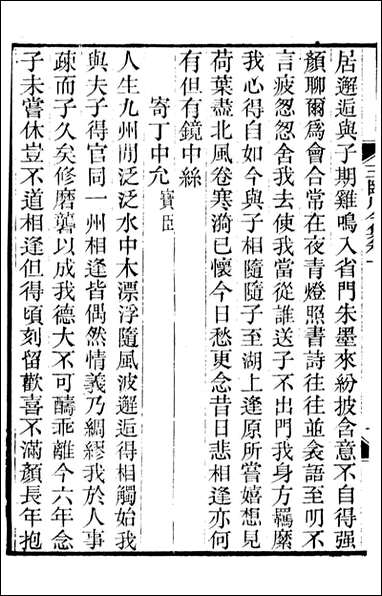 居邂逅與子期雞鳴入省門朱墨來紛披含意不自得强
顏聊爾爲會合常在夜青燈照書詩往往並衾語至明不
言疲忽忽舍我去使我當從誰送子不出門我身方羈縻
我心得自如今與子相隨隨子至湖上逢原所嘗嬉想見
荷葉盡北風卷寒漪已懷今日愁更念昔日悲相逢亦何
有但有鏡中絲
寄丁中允寶臣
人生九州間泛泛水中木漂浮隨風波邂逅得相觸始我
與夫子得官同一州相逢皆偶然情義乃綢繆我於人事
疎而子久矣修磨礱以成我德大不可醻乖離今六年念
子未嘗休豈不道相逢但得頃刻留歡喜不滿顏長年抱